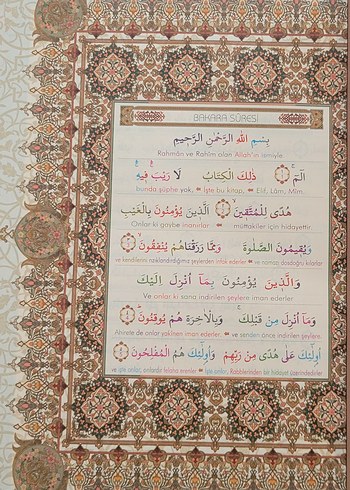 BAKARA SÛRESİ
بِسْمِ اللّٰهِ الرَّحْمٰنِ الرَّحِيمِ
Rahmân ve Rahîm olan Allah'ın ismiyle
الٓمٓ ذٰلِكَ الْكِتَابُ لَا رَيْبَ فِيهِ
bunda şüphe yok, İşte bu kitap, Elif, Lâm, Mîm.
هُدًى لِلْمُتَّقِينَ الَّذِينَ يُؤْمِنُونَ بِالْغَيْبِ
Onlar ki gaybe inanırlar müttakiler için hidayettir.
وَيُقِيمُونَ الصَّلٰوةَ وَمِمَّا رَزَقْنَاهُمْ يُنْفِقُونَ
ve kendilerini rızıklandırdığımız şeylerden infak ederler ve namazı dosdoğru kılarlar
وَالَّذِينَ يُؤْمِنُونَ بِمَٓا اُنْزِلَ اِلَيْكَ
Ve onlar ki sana indirilen şeylere iman ederler
وَمَٓا اُنْزِلَ مِنْ قَبْلِكَ وَبِالْاٰخِرَةِ هُمْ يُوقِنُونَ
Ahirete de onlar yakînen iman ederler. ve senden önce indirilen şeylere.
اُولٰٓئِكَ عَلٰى هُدًى مِنْ رَبِّهِمْ وَاُولٰٓئِكَ هُمُ الْمُفْلِحُونَ
ve işte onlar, onlardır felaha erenler İşte onlar, Rabblerinden bir hidayet üzerindedirler